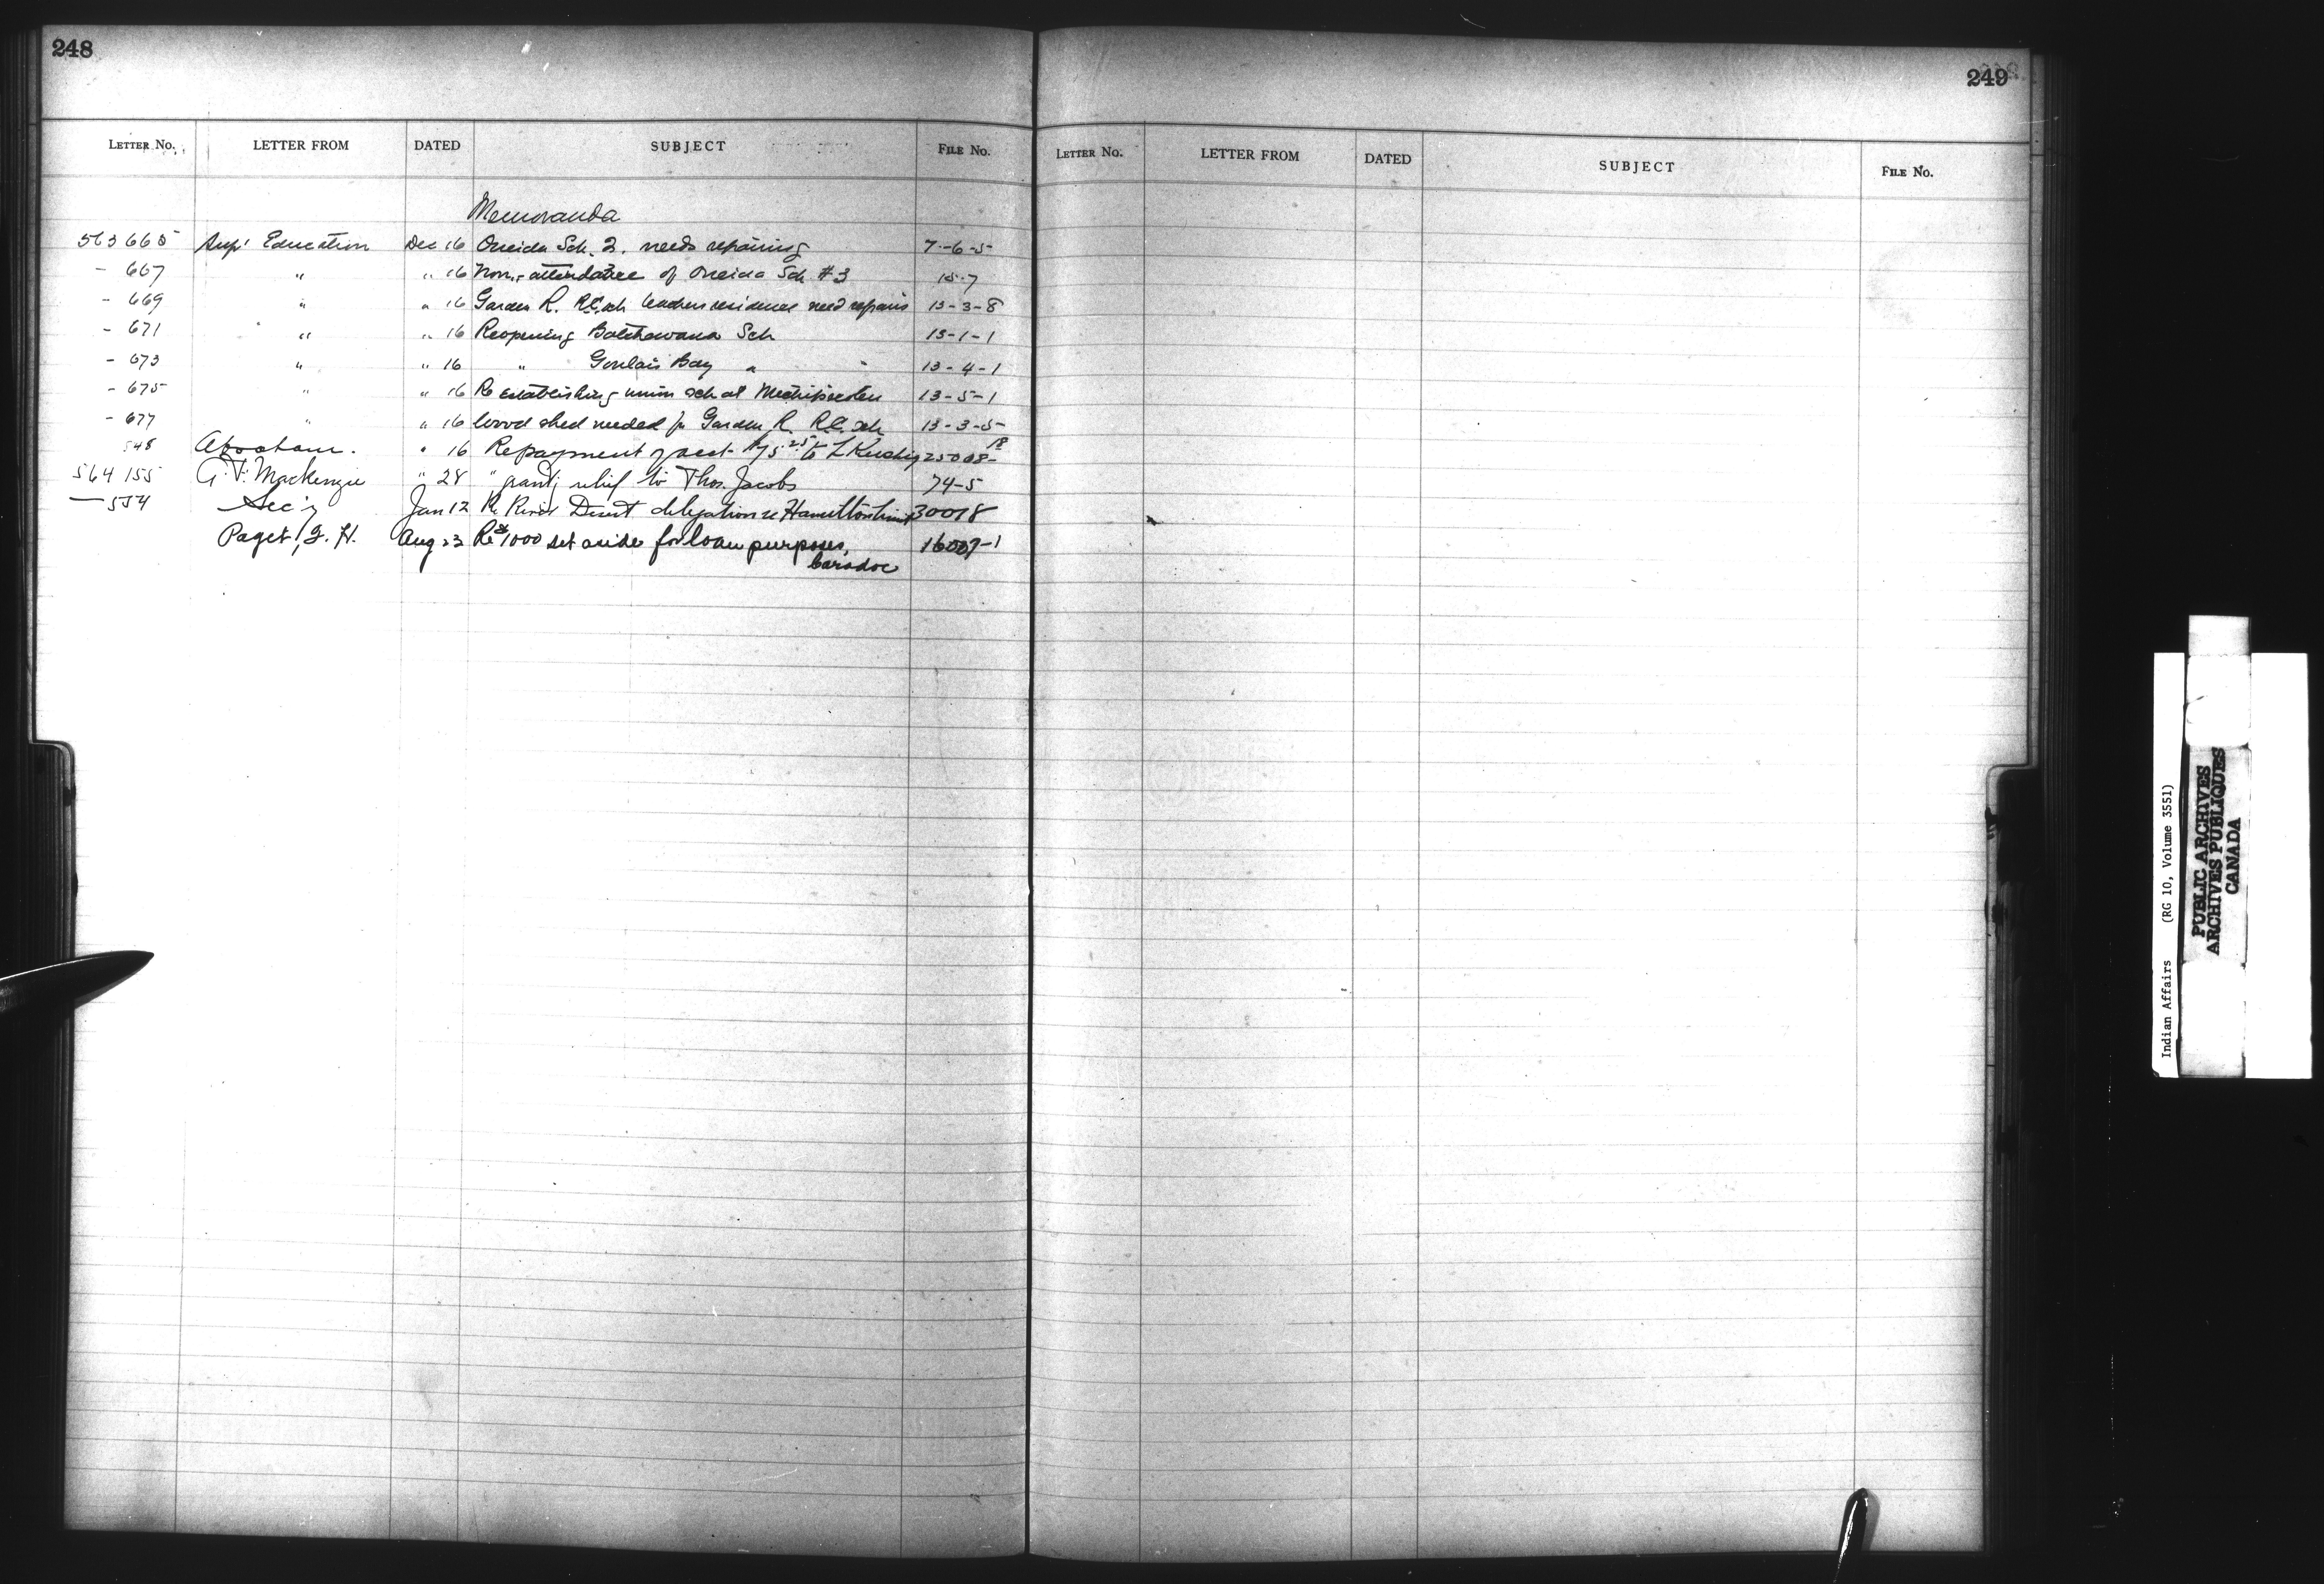 248
LETTER No. LETTER FROM DATED SUBJECT FILE No.
Memoranda
563665 Supt Education Dec 16 Oneida Sch. 2. needs repairing 7-6-5
- 667 " " 16 Non-attendance of Oneida Sch #3 15-7
- 669 " " 16 Garden R. R.C. sch teachers residence need repairs 13-3-8
- 671 " " 16 Reopening Batchawana Sch 13-1-1
- 673 " " 16 " Goulais Bay " 13-4-1
- 675 " " 16 Re establishing union sch at Michipicoten 13-5-1
- 677 " " 16 Wood shed needed for Garden R. R.C. sch 13-3-5
548 Abraham. " 16 Repayment of acct to L 25008-18
564155 A. F. Mackenzie " 28 " grantg relief to Thos. Jacobs 74-5
— 554 Sec'y Jan 12 Re delegation re Hamilton 30018
Paget, F. H. Aug 23 Re $1000 set aside for loan purposes, 16007-1
Caradoc
249
LETTER No. LETTER FROM DATED SUBJECT FILE No.
Indian Affairs (RG 10, Volume 3551)
PUBLIC ARCHIVES
ARCHIVES PUBLIQUES
CANADA